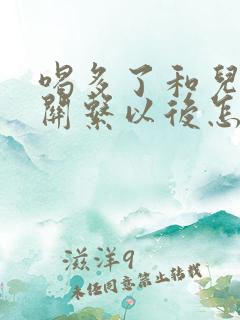 喝多了和兒
關繫以後怎
滋洋9
未经同意禁止转载